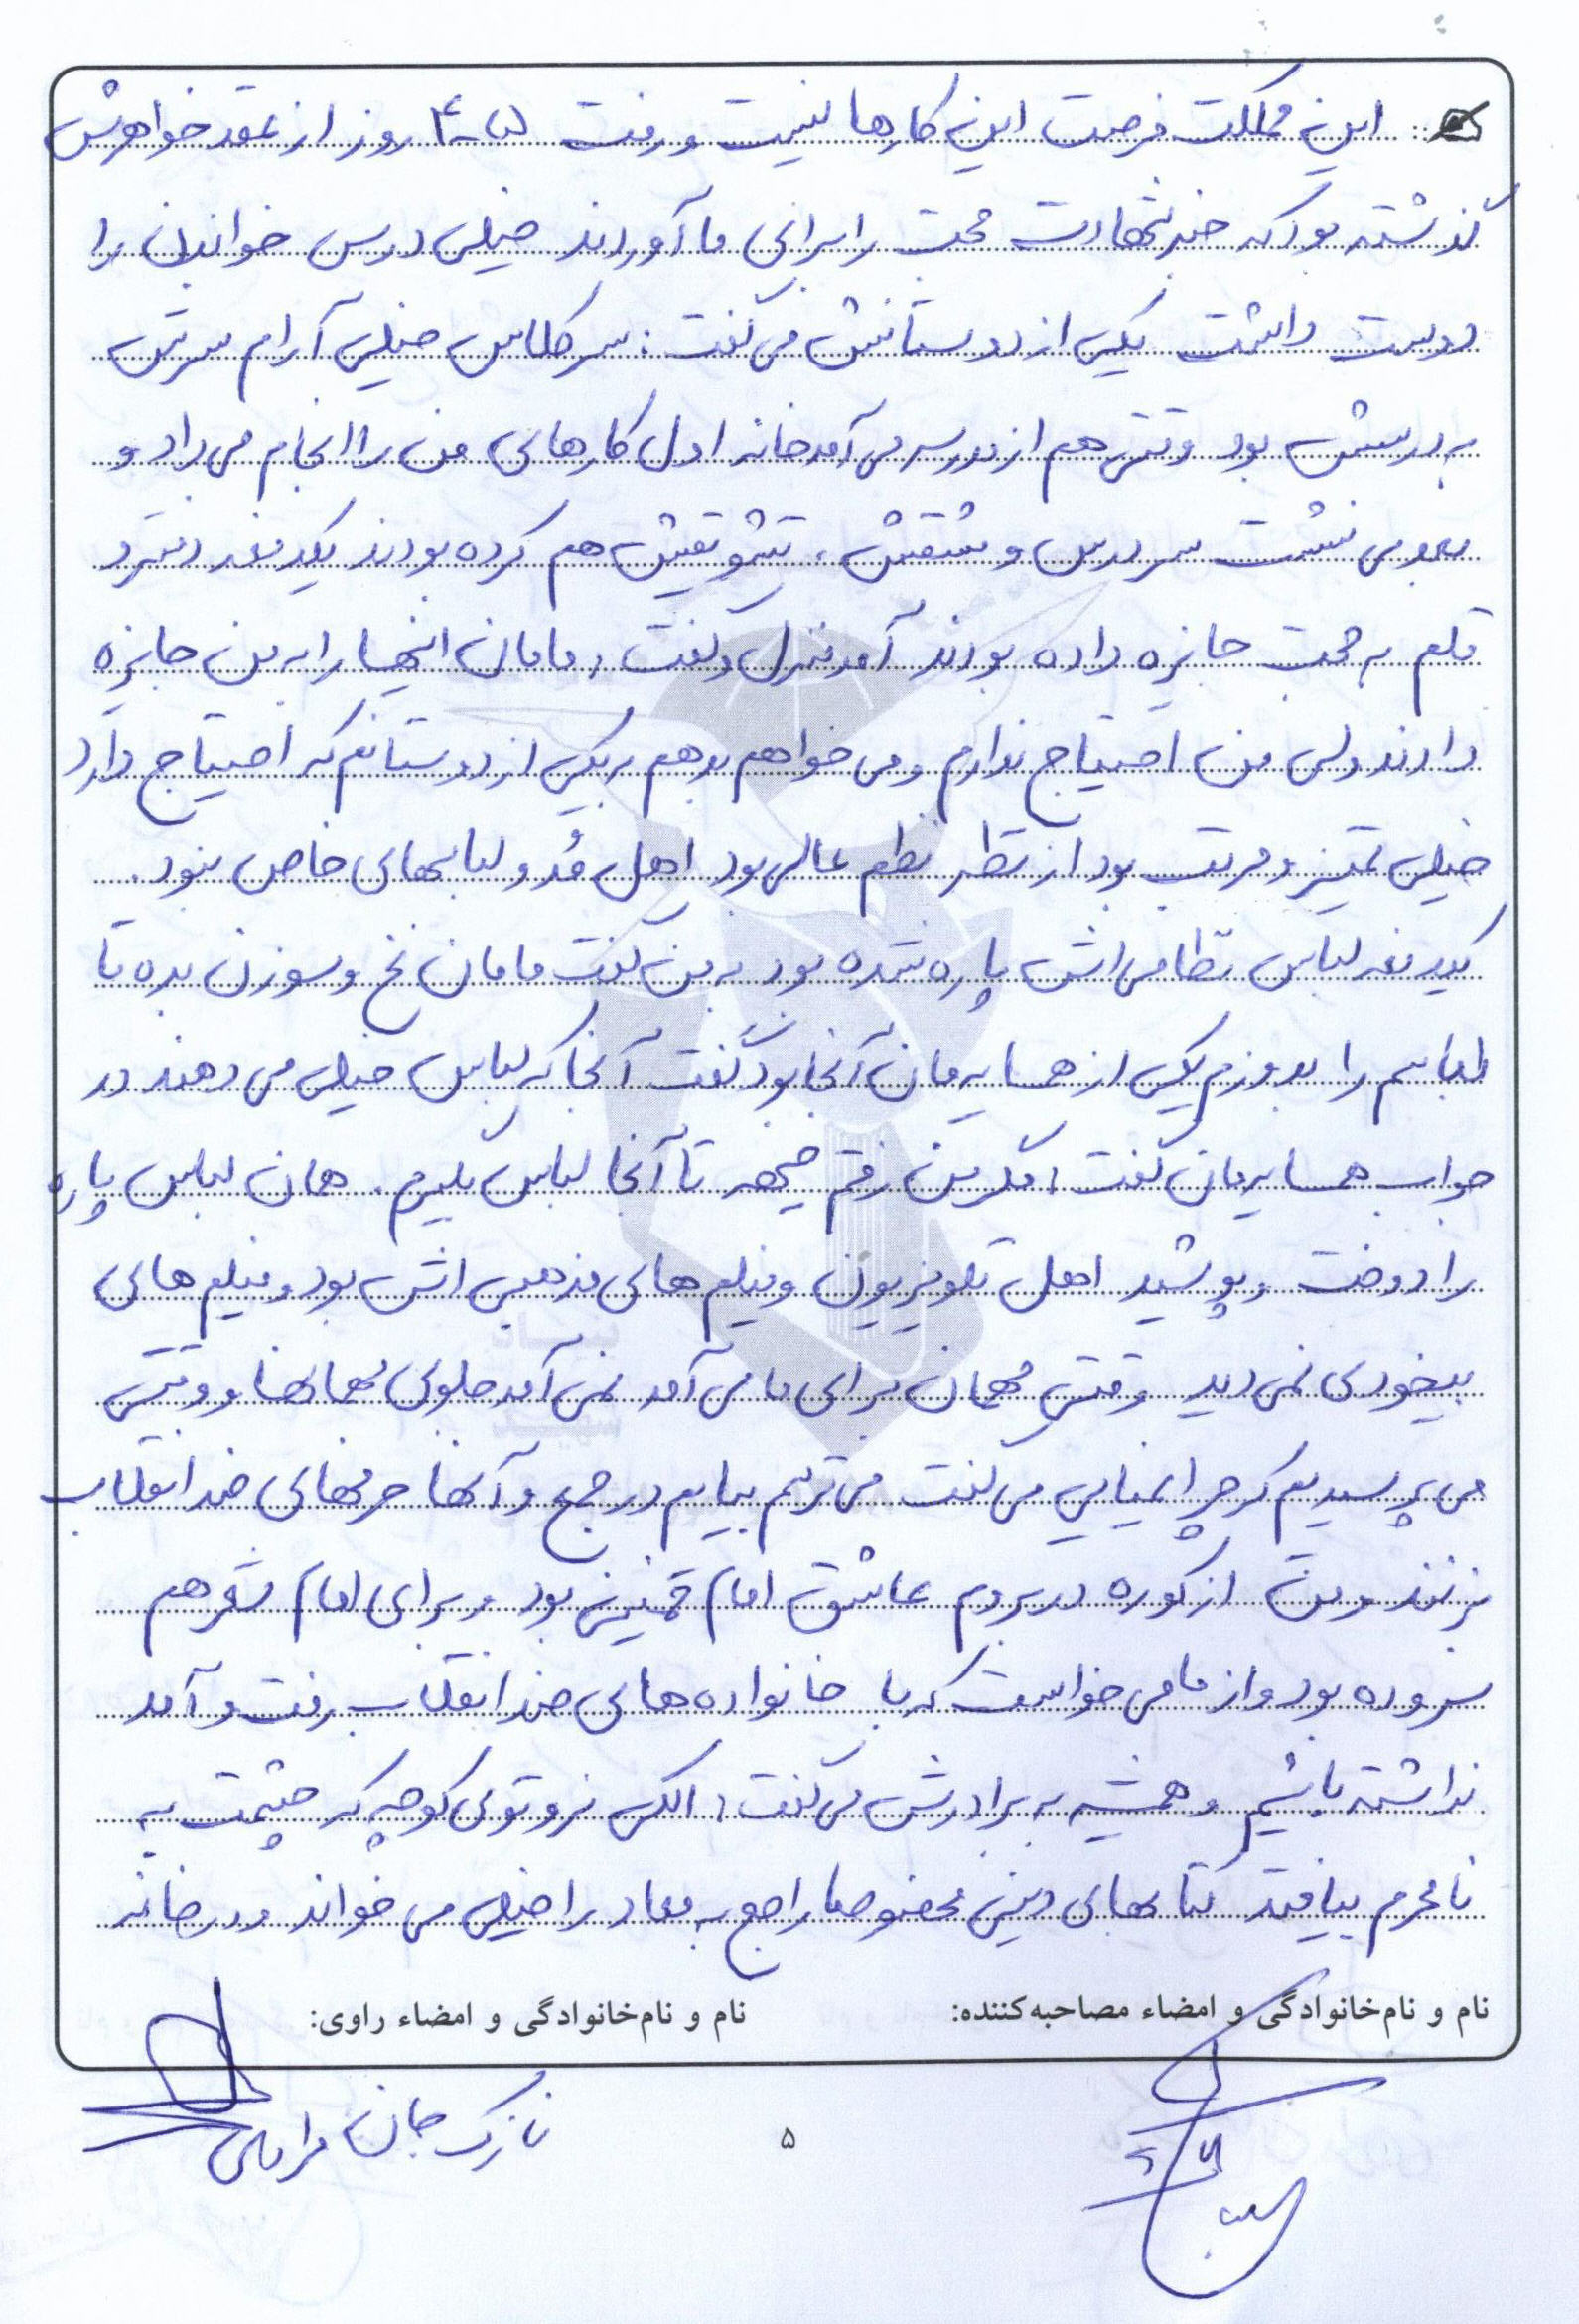 این مملکت فرصت این کارها نیست و رفت ۵-۴ روز از عقد خواهرش
گذشته بود که خبر شهادت محبت را برای ما آوردند خیلی درس خواندن را
دوست داشت یکی از دوستانش می گفت : سر کلاس خیلی آرام سرش
به درسش بود وقتی هم از مدرسه می آمد خانه اول کارهای من را انجام می داد و
بعد می نشست سر درس و مشقش ، تشویقش هم کرده بودند یکدفعه دفتر و
قلم به محبت جایزه داده بودند آمد منزل و گفت : مامان اینها را به من جایزه
دادند ولی من احتیاج ندارم و می خواهم بدهم به یکی از دوستانم که احتیاج دارد
خیلی تمیز و مرتب بود از نظر نظم عالی بود اهل مُد و لباسهای خاص نبود .
یکدفعه لباس نظامی اش پاره شده بود به من گفت مامان نخ و سوزن بده تا
لباسم را بدوزم یکی از همسایه مان آنجا بود گفت آنجا که لباس خیلی می دهند در
جواب همسایه مان گفت : مگر من رفتم جبهه تا آنجا لباس بگیرم . همان لباس پاره
را دوخت و پوشید اهل تلویزیون و فیلم های مذهبی اش بود و فیلم های
بیخودی نمی دید وقتی مهمان برای ما می آمد نمی آمد جلوی مهمانها و وقتی
می پرسیدیم که چرا نمیایی می گفت می ترسم بیایم در جمع و آنها حرفهای ضد انقلاب
بزنند و من از کوره در بروم عاشق امام خمینی بود و برای امام شعر هم
سروده بود و از ما می خواست که با خانواده های ضد انقلاب رفت و آمد
نداشته باشیم و همیشه به برادرش می گفت : الکی نرو توی کوچه که چشمت به
نامحرم بیافتد کتابهای دینی مخصوصا راجع به معاد را خیلی می خواند و در خانه
نام و نام‌خانوادگی و امضاء مصاحبه‌کننده:
نام و نام‌خانوادگی و امضاء راوی:
نازک جان
۵